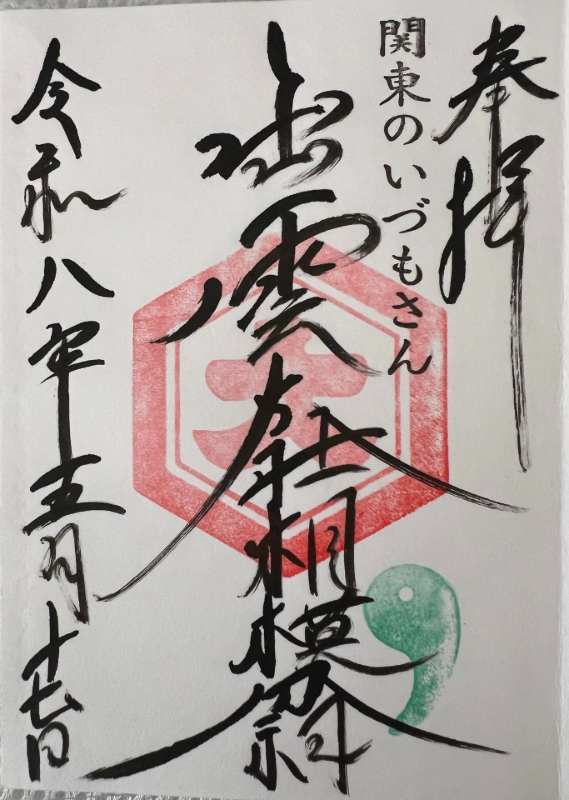 奉拝
関東のいづもさん
出雲大社相模分祠
令和八年五月十七日
大